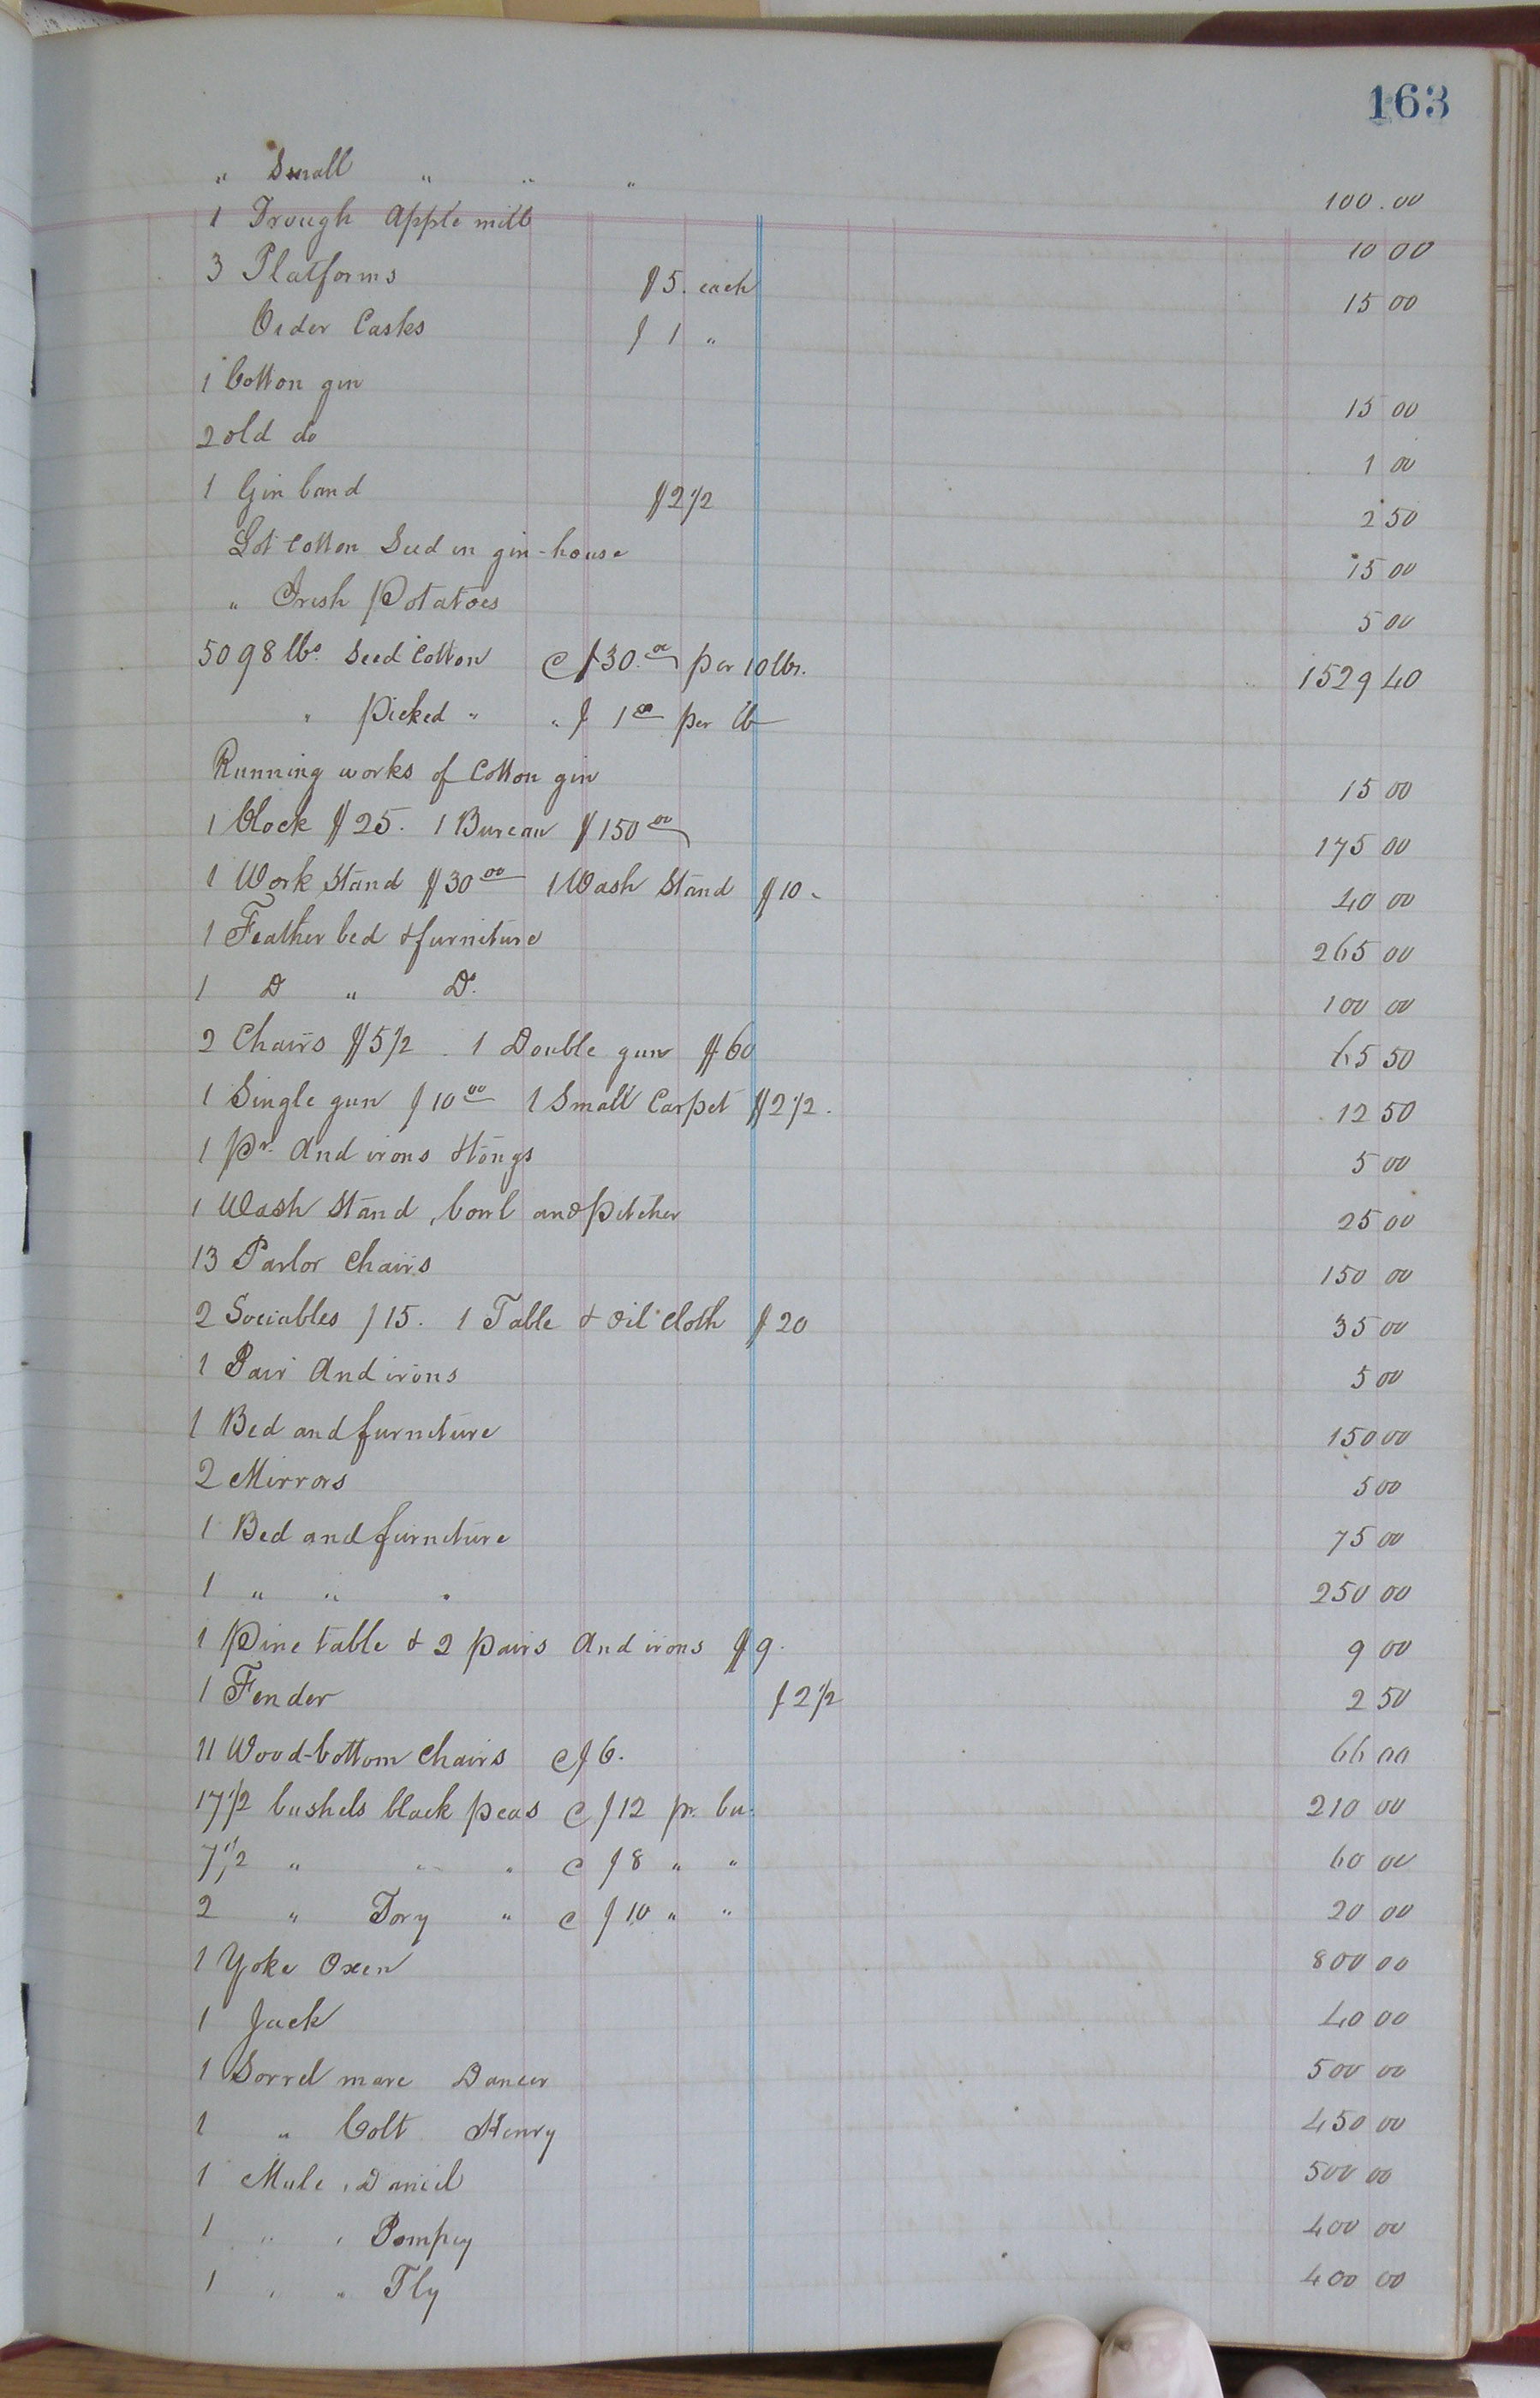 163
" Small " " " 100.00
1 Trough Apple mill 10 00
3 Platforms $5. each 15 00
Cider Casks $ 1 "
1 Cotton gin 15 00
2 old do 1 00
1 Gin band $2 1/2 2 50
Lot Cotton Seed in gin-house 15 00
" Irish Potatoes 5 00
5098 lbs. Seed Cotton @ $30.00 per 10 lbs. 1529 40
" Picked " " $ 1 00 per lb
Running works of Cotton gin 15 00
1 Clock $25. 1 Bureau $150 00 175 00
1 Work Stand $30 00 1 Wash Stand $10 - 40 00
1 Feather bed & furniture 265 00
1 Do " Do. 100 00
2 Chairs $5 1/2 . 1 Double gun $60 65 50
1 Single gun $10 00 1 Small Carpet $2 1/2. 12 50
1 Pr. And irons & tongs 5 00
1 Wash Stand, bowl and pitcher 25 00
13 Parlor Chairs 150 00
2 Sociables $15. 1 Table & oil cloth $20 35 00
1 Pair And irons 5 00
1 Bed and furniture 150 00
2 Mirrors 5 00
1 Bed and furniture 75 00
1 " " " 250 00
1 Pine table & 2 pairs And irons $9. 9 00
1 Fender $2 1/2 2 50
11 Wood-bottom Chairs @ $6. 66 00
17 1/2 bushels black peas @ $12 pr. bu. 210 00
7 1/2 " " " @ $8 " " 60 00
2 " Tory " @ $10 " " 20 00
1 Yoke Oxen 800 00
1 Jack 40 00
1 Sorrel mare Dancer 500 00
1 " Colt Henry 450 00
1 Mule, Daniel 500 00
1 " , Pompey 400 00
1 " " Fly 400 00